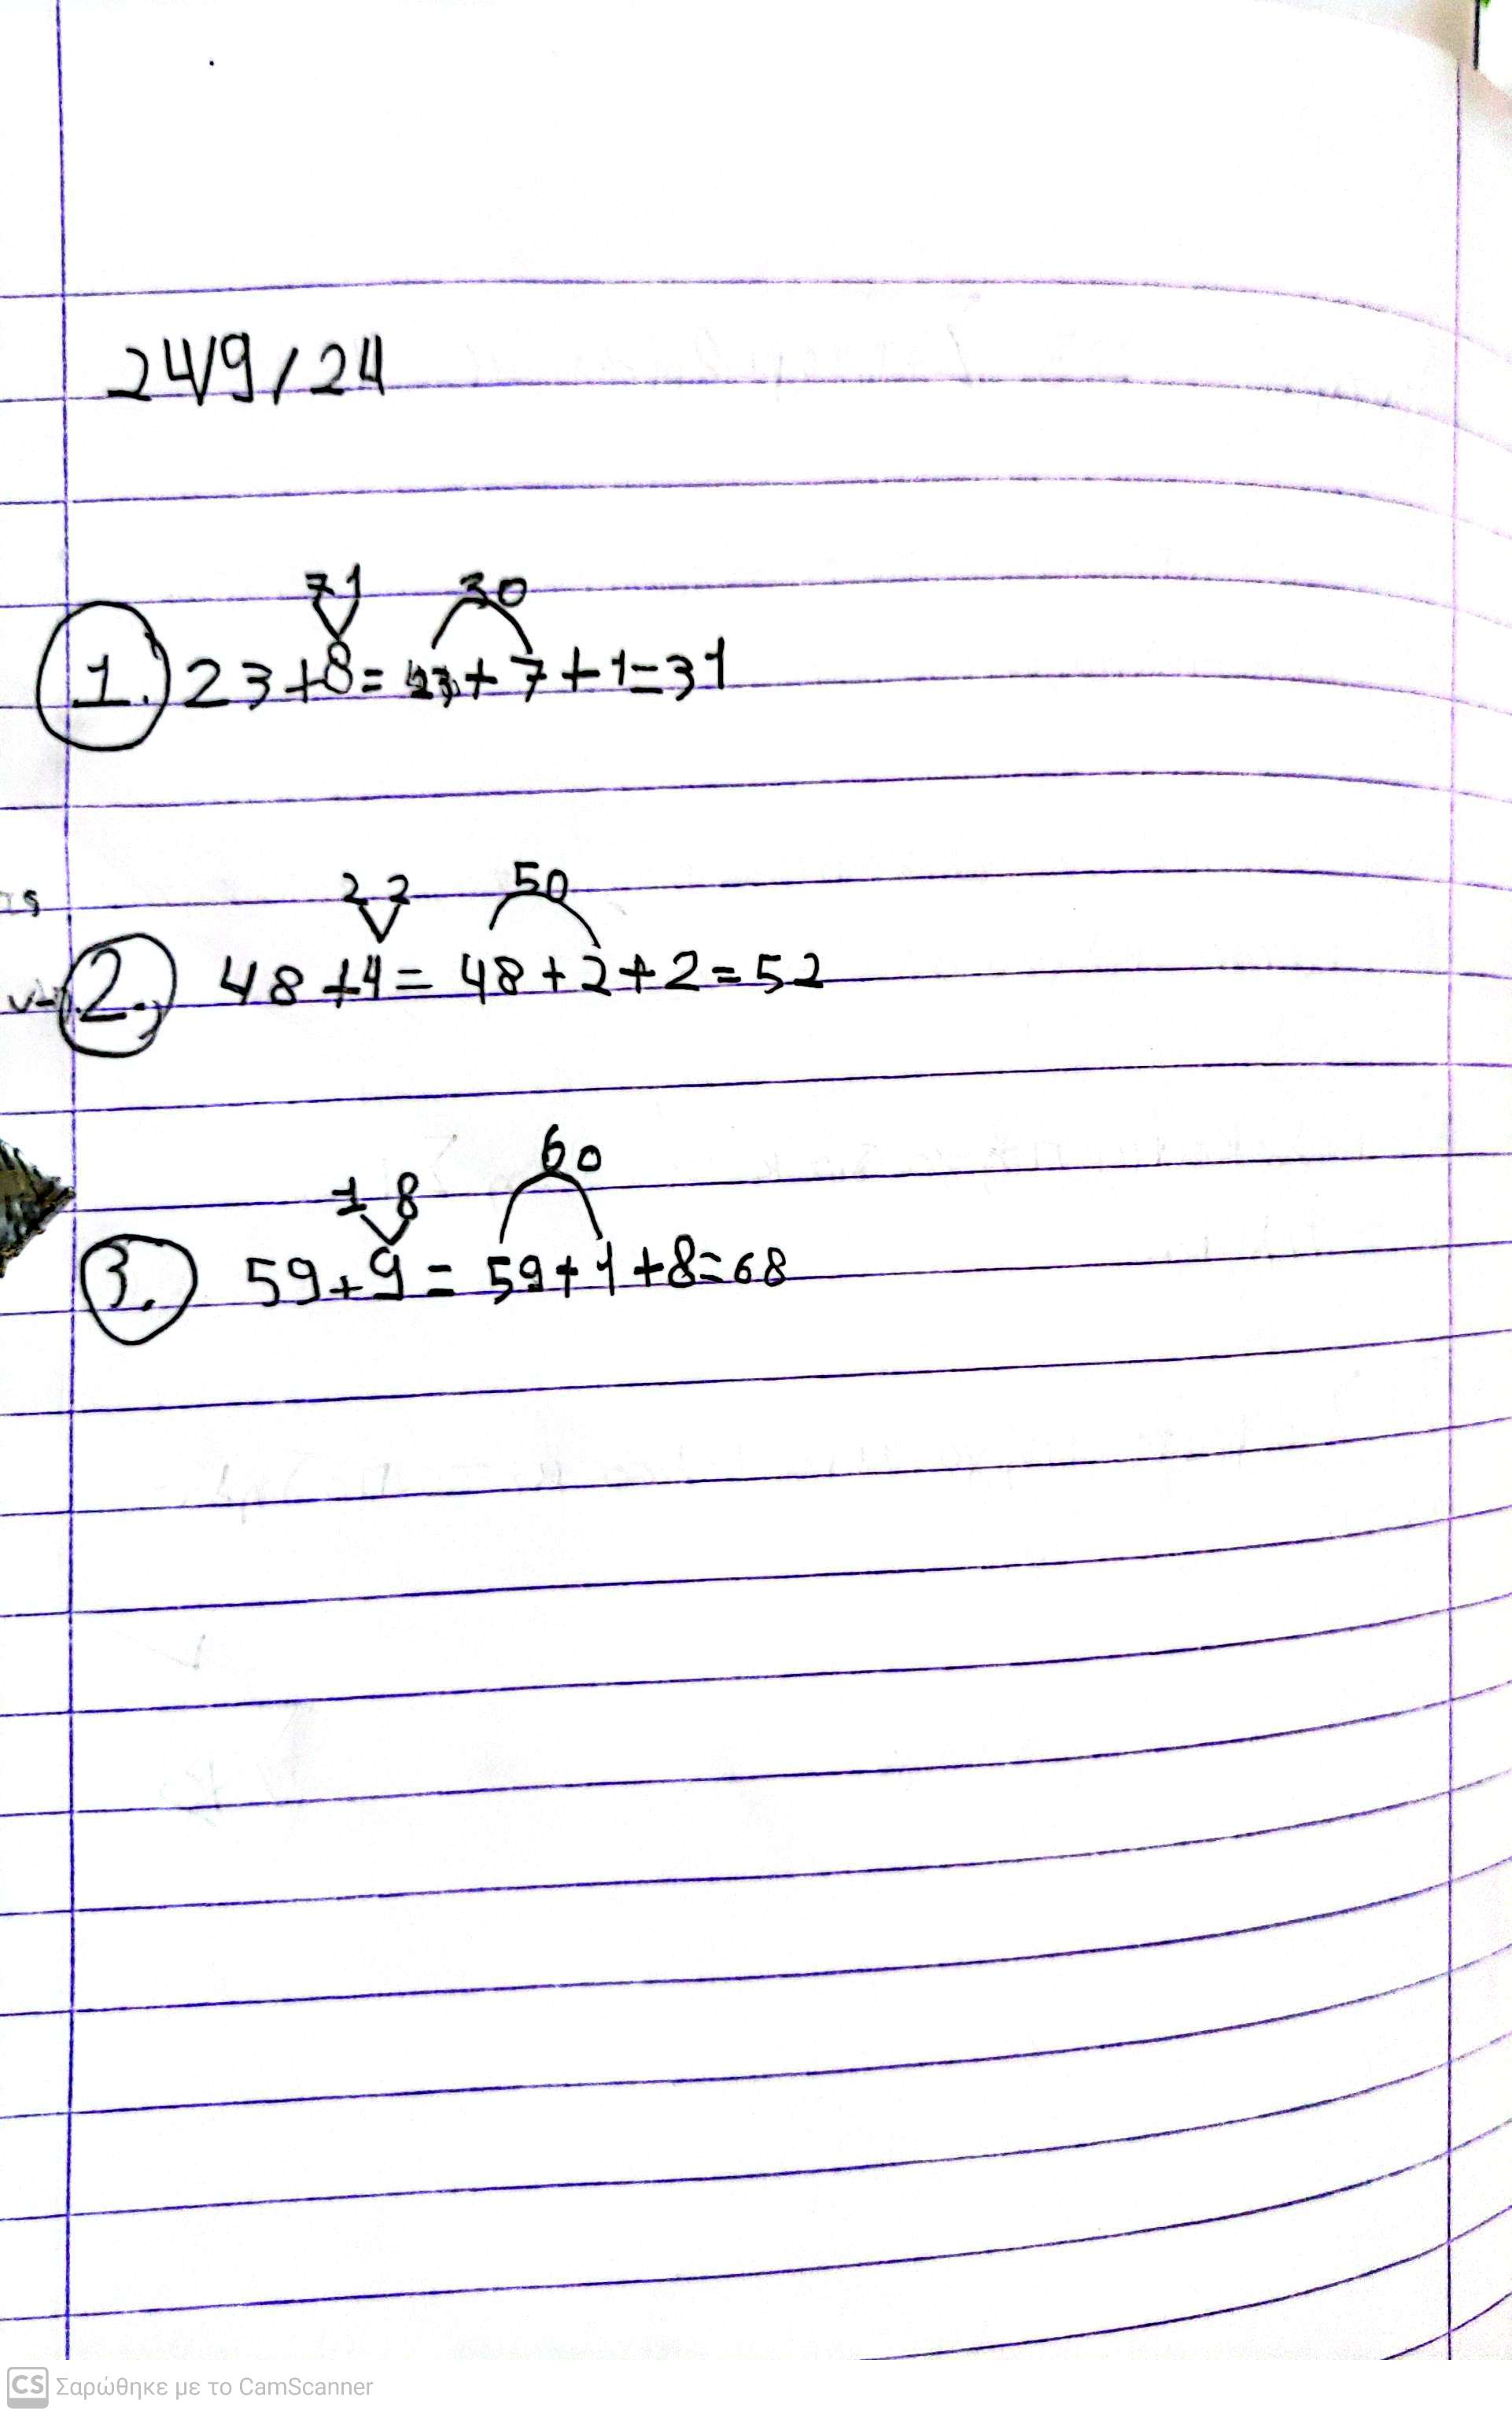 24/9/24
7 1 30
1. 23+8= 23+7+1=31
2 2 50
2. 48+4= 48+2+2=52
60
1 8
3. 59+9= 59+1+8=68
CS Σαρώθηκε με το CamScanner